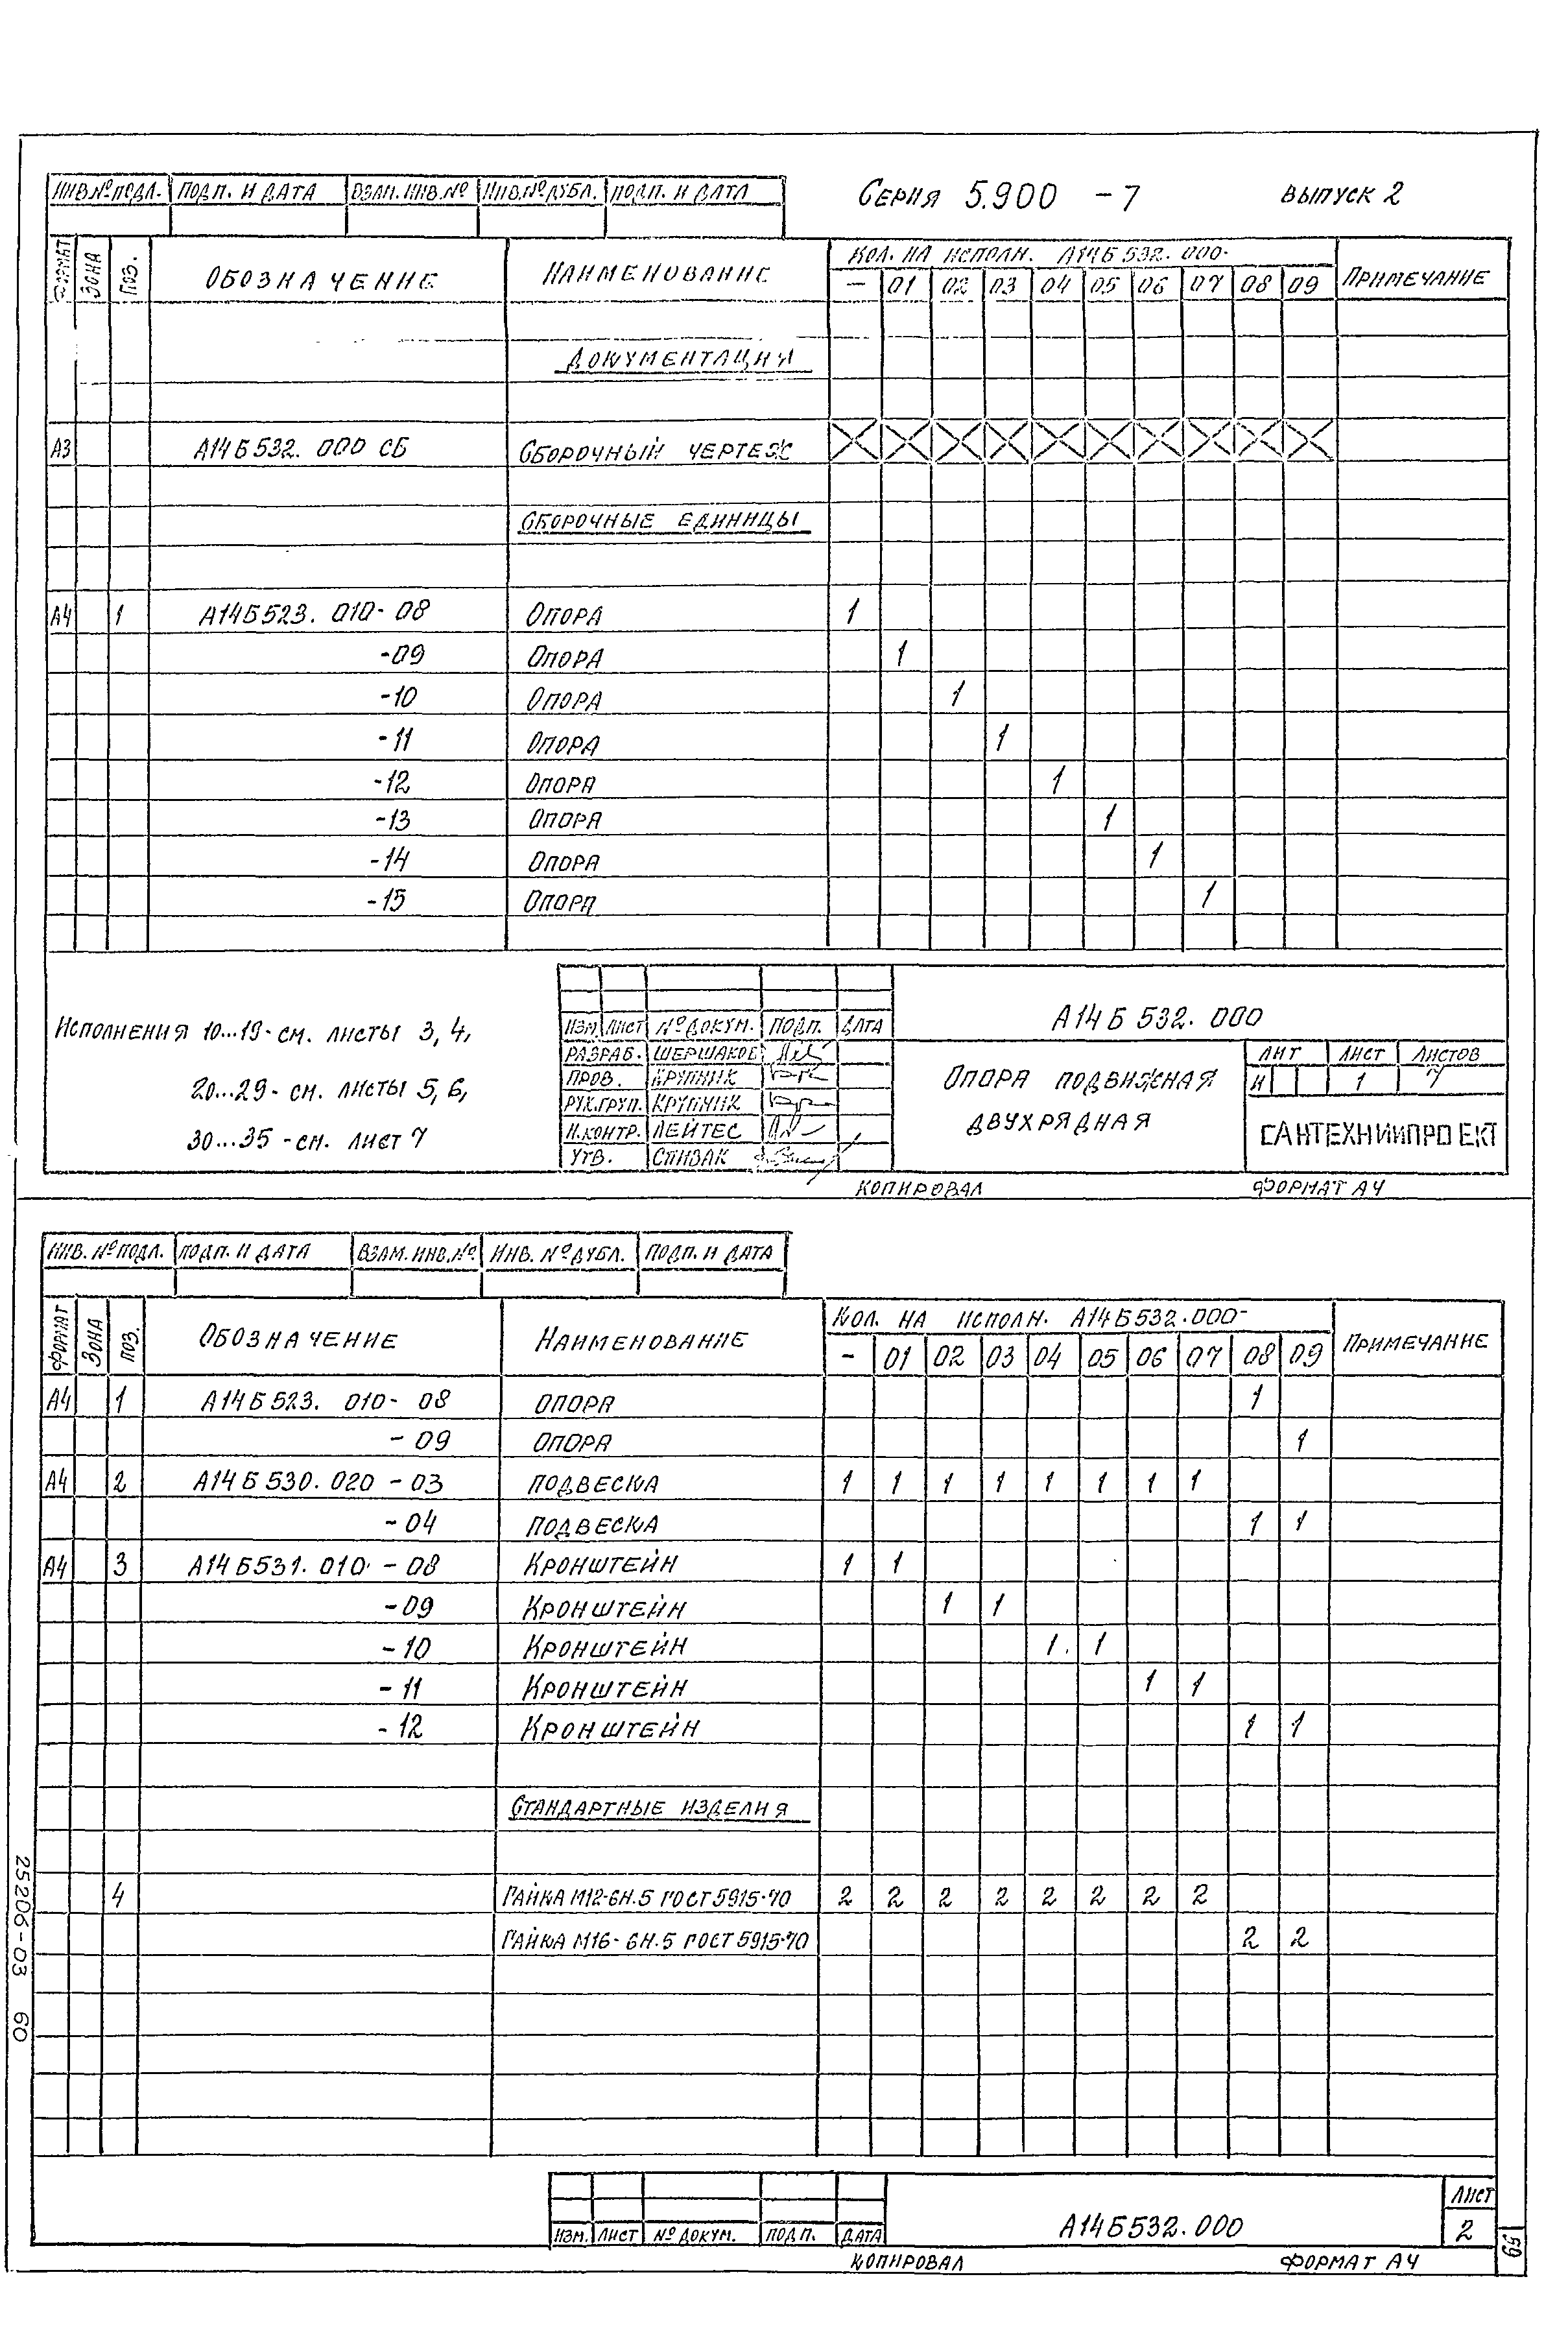 ИНВ.№ ПОДЛ. ПОДП. И ДАТА ВЗАМ. ИНВ.№ ИНВ.№ ДУБЛ. ПОДП. И ДАТА
СЕРИЯ 5.900 -7 ВЫПУСК 2
ФОРМАТ ЗОНА ПОЗ. ОБОЗНАЧЕНИЕ НАИМЕНОВАНИЕ КОЛ. НА ИСПОЛН. А14Б532.000- ПРИМЕЧАНИЕ
— 01 02 03 04 05 06 07 08 09
ДОКУМЕНТАЦИЯ
А3 А14Б532.000 СБ СБОРОЧНЫЙ ЧЕРТЕЖ
СБОРОЧНЫЕ ЕДИНИЦЫ
А4 1 А14Б523.010-08 ОПОРА 1
-09 ОПОРА 1
-10 ОПОРА 1
-11 ОПОРА 1
-12 ОПОРА 1
-13 ОПОРА 1
-14 ОПОРА 1
-15 ОПОРА 1
ИСПОЛНЕНИЯ 10...19- СМ. ЛИСТЫ 3, 4,
20...29- СМ. ЛИСТЫ 5, 6,
30...35 -СМ. ЛИСТ 7
ИЗМ. ЛИСТ № ДОКУМ. ПОДП. ДАТА
РАЗРАБ. ШЕРШАКОВ
ПРОВ. КРУПНИК
РУК.ГРУП. КРУПНИК
Н.КОНТР. ЛЕЙТЕС
УТВ. СПИВАК
А14Б532.000
ОПОРА ПОДВИЖНАЯ
ДВУХРЯДНАЯ
ЛИТ ЛИСТ ЛИСТОВ
И 1 7
САНТЕХНИИПРОЕКТ
КОПИРОВАЛ ФОРМАТ А4
ИНВ. № ПОДЛ. ПОДП. И ДАТА ВЗАМ. ИНВ.№ ИНВ. № ДУБЛ. ПОДП. И ДАТА
ФОРМАТ ЗОНА ПОЗ. ОБОЗНАЧЕНИЕ НАИМЕНОВАНИЕ КОЛ. НА ИСПОЛН. А14Б532.000- ПРИМЕЧАНИЕ
— 01 02 03 04 05 06 07 08 09
А4 1 А14Б523.010-08 ОПОРА 1
-09 ОПОРА 1
А4 2 А14Б530.020-03 ПОДВЕСКА 1 1 1 1 1 1 1 1
-04 ПОДВЕСКА 1 1
А4 3 А14Б531.010-08 КРОНШТЕЙН 1 1
-09 КРОНШТЕЙН 1 1
-10 КРОНШТЕЙН 1 1
-11 КРОНШТЕЙН 1 1
-12 КРОНШТЕЙН 1 1
СТАНДАРТНЫЕ ИЗДЕЛИЯ
4 ГАЙКА М12-6Н.5 ГОСТ 5915-70 2 2 2 2 2 2 2 2
ГАЙКА М16-6Н.5 ГОСТ 5915-70 2 2
25206-03 60
ИЗМ. ЛИСТ № ДОКУМ. ПОДП. ДАТА
А14Б532.000
ЛИСТ
2
КОПИРОВАЛ ФОРМАТ А4
59